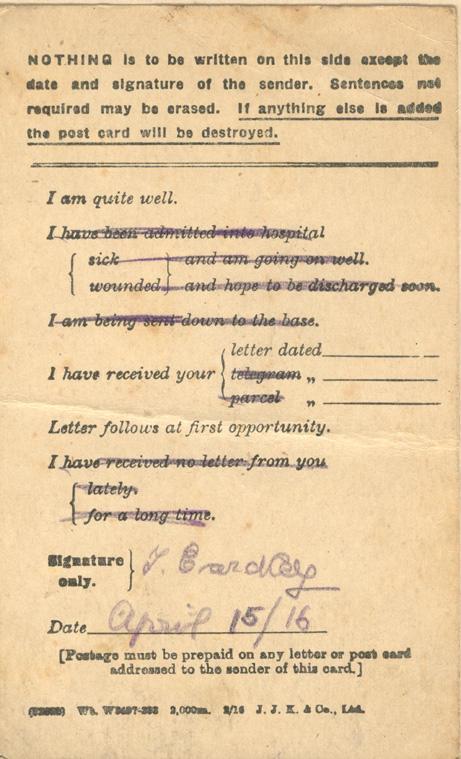 NOTHING is to be written on this side except the
date and signature of the sender. Sentences not
required may be erased. If anything else is added
the post card will be destroyed.
I am quite well.
I have been admitted into hospital
sick and am going on well.
wounded and hope to be discharged soon.
I am being sent down to the base.
letter dated
I have received your telegram „
parcel „
Letter follows at first opportunity.
I have received no letter from you
lately.
for a long time.
Signature
only.
Date April 15/16
[Postage must be prepaid on any letter or post card
addressed to the sender of this card.]
2,000m. 2/16 J. J. K. & Co., Ltd.